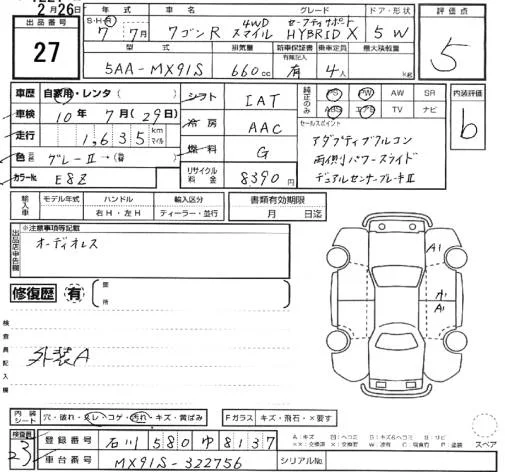 2月26日
出品番号
27
年式 車名 グレード ドア・形状
S・H・R
7 7月 ワゴンR 4WD スマイル セーフティサポート HYBRID X 5W
型式 排気量 新車保証書 乗車定員 最大積載量
有無記入
5AA-MX91S 660cc 有 4人 kg
評価点
5
車歴 自家用・レンタ( )
車検 10年7月(29日)
走行 1,635 km マイル
色 グレーⅡ→(替 )
カラーNo. E8Z
シフト IAT
冷房 AAC
燃料 G
リサイクル料金 8390円
純正のみ PS PW AW SR
ABS エアB TV ナビ
セールスポイント
アダプティブクルコン
両側パワースライド
デュアルセンサーブレーキⅡ
内装評価
b
輸入車 モデル年式 ハンドル 輸入区分
右H・左H ディーラー・並行
書類有効期限
月 日迄
出品店申告欄
※注意事項等記載
オーディオレス
修復歴 有 箇所
検査員記入欄
外装A
A1
A1
A1
内装シート 穴・破れ・スレ・コゲ・汚れ・キズ・黄ばみ
Fガラス キズ・飛石・×要す
検査員
23
登録番号 石川 580 ゆ 8137
車台番号 MX91S-322756
シリアルNo.
スペア